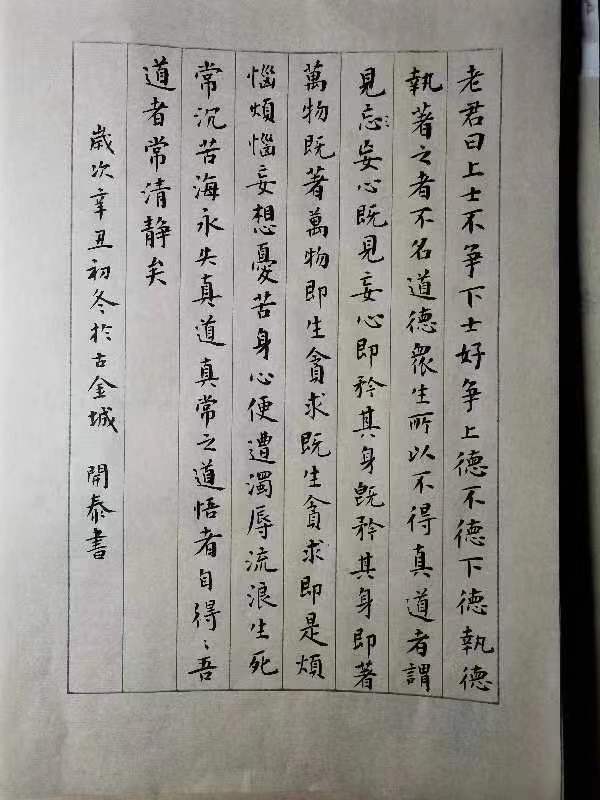 老君曰上士不争下士好争上德不德下德執德
執著之者不名道德衆生所以不得真道者謂
見忘妄心既見妄心即矜其身既矜其身即著
萬物既著萬物即生貪求既生貪求即是煩
惱煩惱妄想憂苦身心便遭濁辱流浪生死
常沉苦海永失真道真常之道悟者自得、吾
道者常清静矣
歲次辛丑初冬於古金城 開泰書